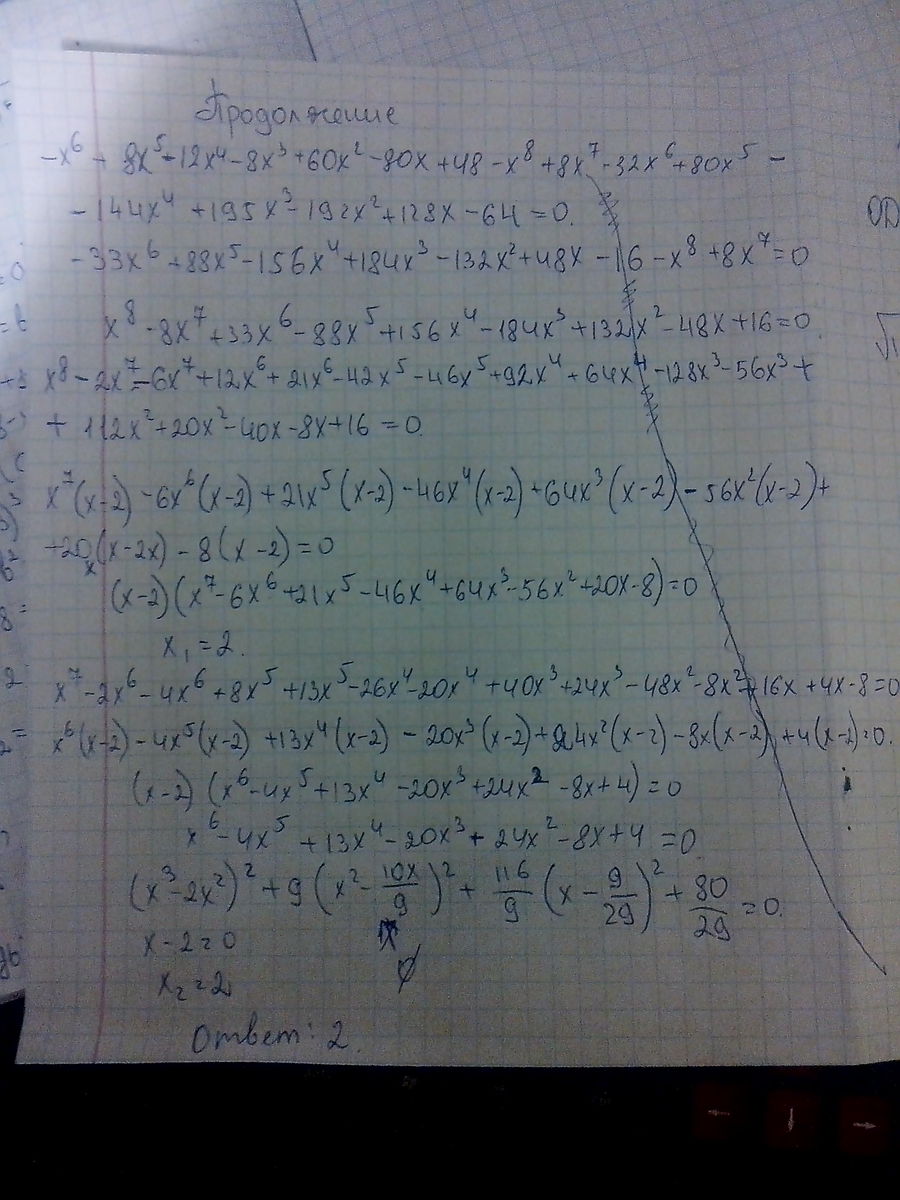 Продолжение
-x⁶ + 8x⁵ - 12x⁴ - 8x³ + 60x² - 80x + 48 - x⁸ + 8x⁷ - 32x⁶ + 80x⁵ -
- 144x⁴ + 195x³ - 192x² + 128x - 64 = 0.
-33x⁶ + 88x⁵ - 156x⁴ + 184x³ - 132x² + 48x - 16 - x⁸ + 8x⁷ = 0
x⁸ - 8x⁷ + 33x⁶ - 88x⁵ + 156x⁴ - 184x³ + 132x² - 48x + 16 = 0
x⁸ - 2x⁷ - 6x⁷ + 12x⁶ + 21x⁶ - 42x⁵ - 46x⁵ + 92x⁴ + 64x⁴ - 128x³ - 56x³ +
+ 112x² + 20x² - 40x - 8x + 16 = 0.
x⁷(x-2) - 6x⁶(x-2) + 21x⁵(x-2) - 46x⁴(x-2) + 64x³(x-2) - 56x²(x-2) +
+20x(x-2x) - 8(x-2) = 0
(x-2)(x⁷ - 6x⁶ + 21x⁵ - 46x⁴ + 64x³ - 56x² + 20x - 8) = 0
x₁ = 2.
x⁷ - 2x⁶ - 4x⁶ + 8x⁵ + 13x⁵ - 26x⁴ - 20x⁴ + 40x³ + 24x³ - 48x² - 8x² + 16x + 4x - 8 = 0
x⁶(x-2) - 4x⁵(x-2) + 13x⁴(x-2) - 20x³(x-2) + 24x²(x-2) - 8x(x-2) + 4(x-2) = 0.
(x-2)(x⁶ - 4x⁵ + 13x⁴ - 20x³ + 24x² - 8x + 4) = 0
x⁶ - 4x⁵ + 13x⁴ - 20x³ + 24x² - 8x + 4 = 0
(x³ - 2x²)² + 9(x² - 10x/9)² + 116/9 (x - 9/29)² + 80/29 = 0.
x - 2 = 0
∅
x₂ = 2
Ответ: 2.